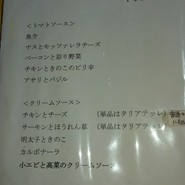 <トマトソース>
魚介
ナスとモッツァレラチーズ
ベーコンと彩り野菜
チキンときのこのピリ辛
アサリとバジル
<クリームソース>
チキンとチーズ (単品はタリアテッレ)
サーモンとほうれん草 (単品はタリアテッレ)
明太子ときのこ
カルボナーラ
小エビと高菜のクリームソース